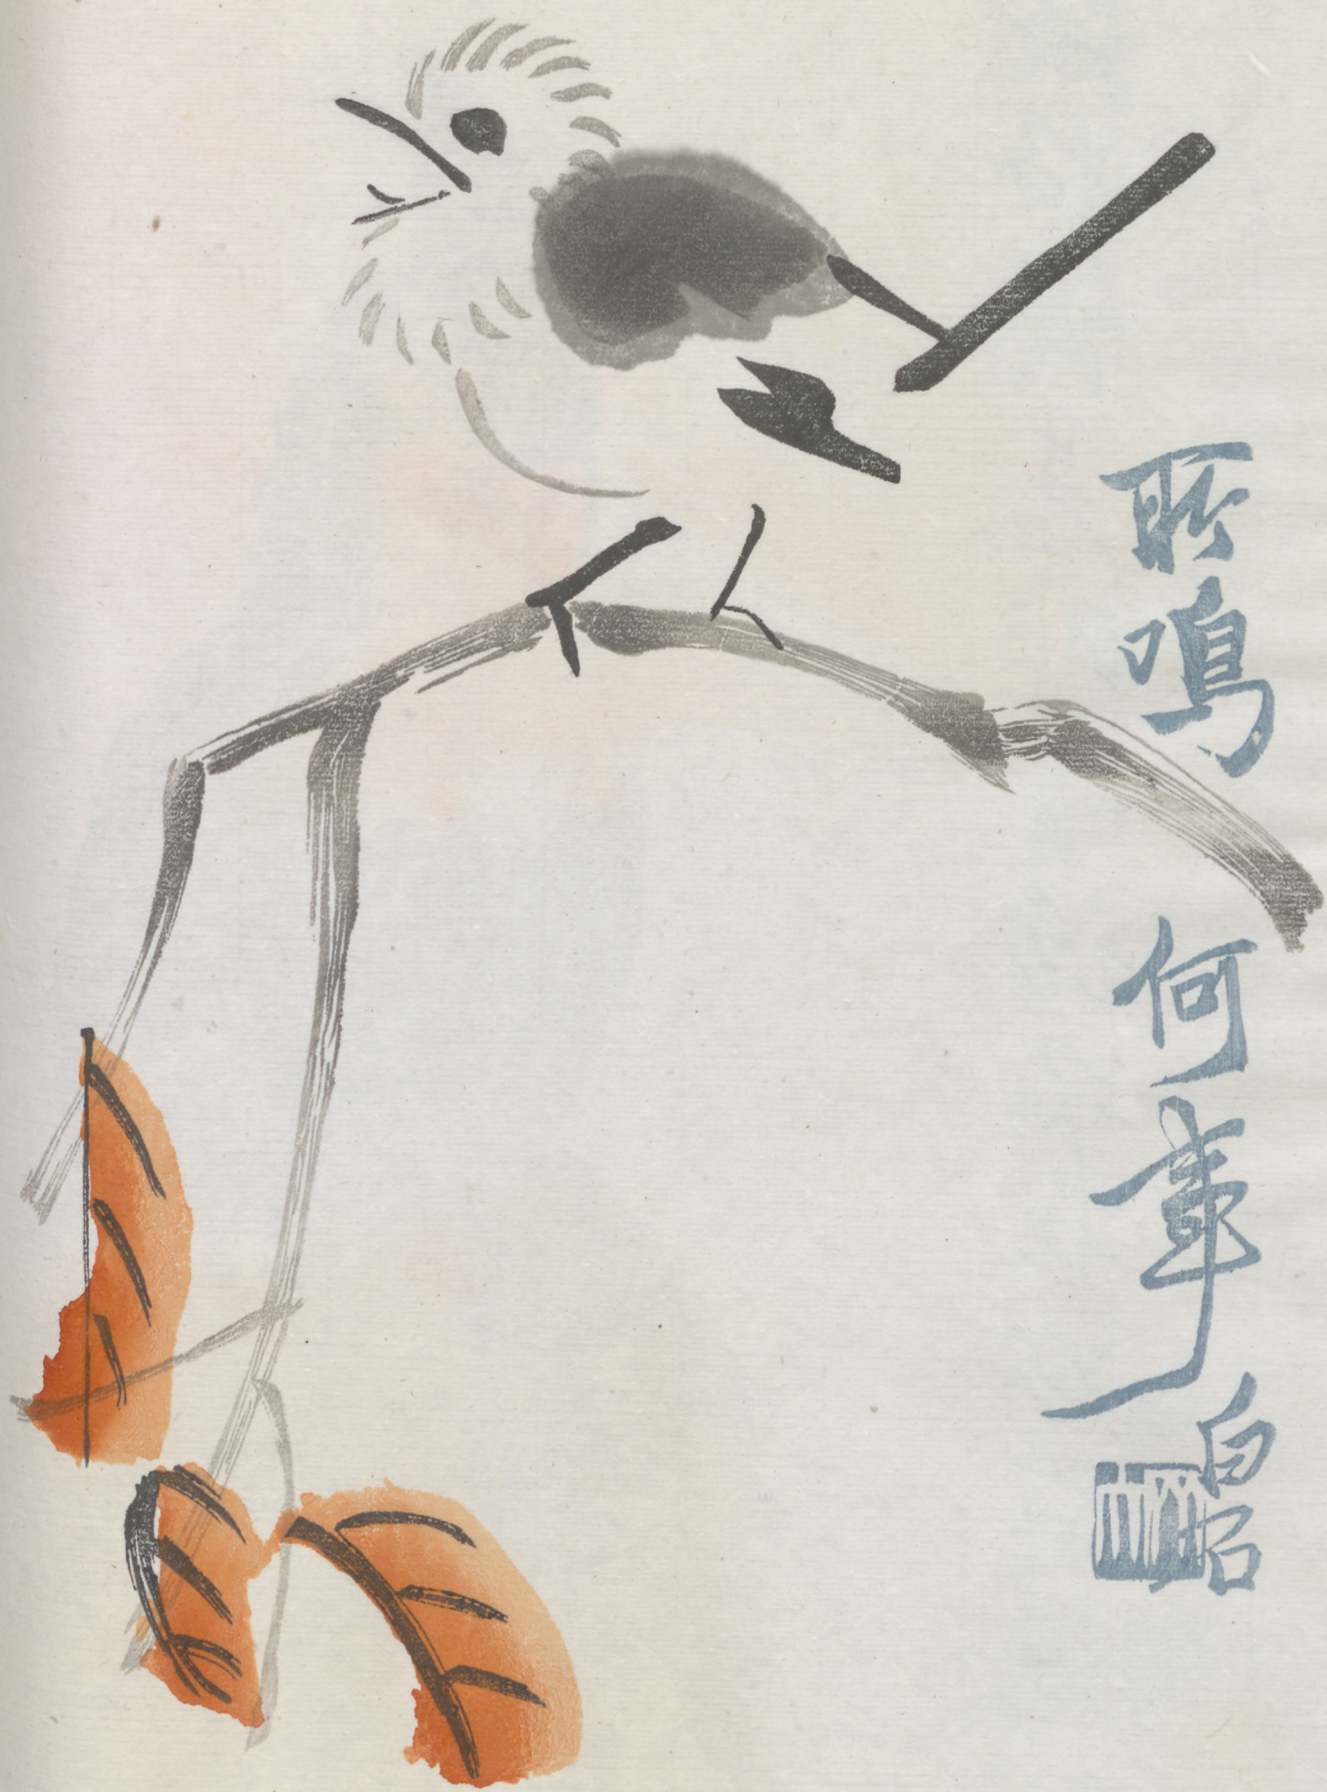 所鳴何事
白石